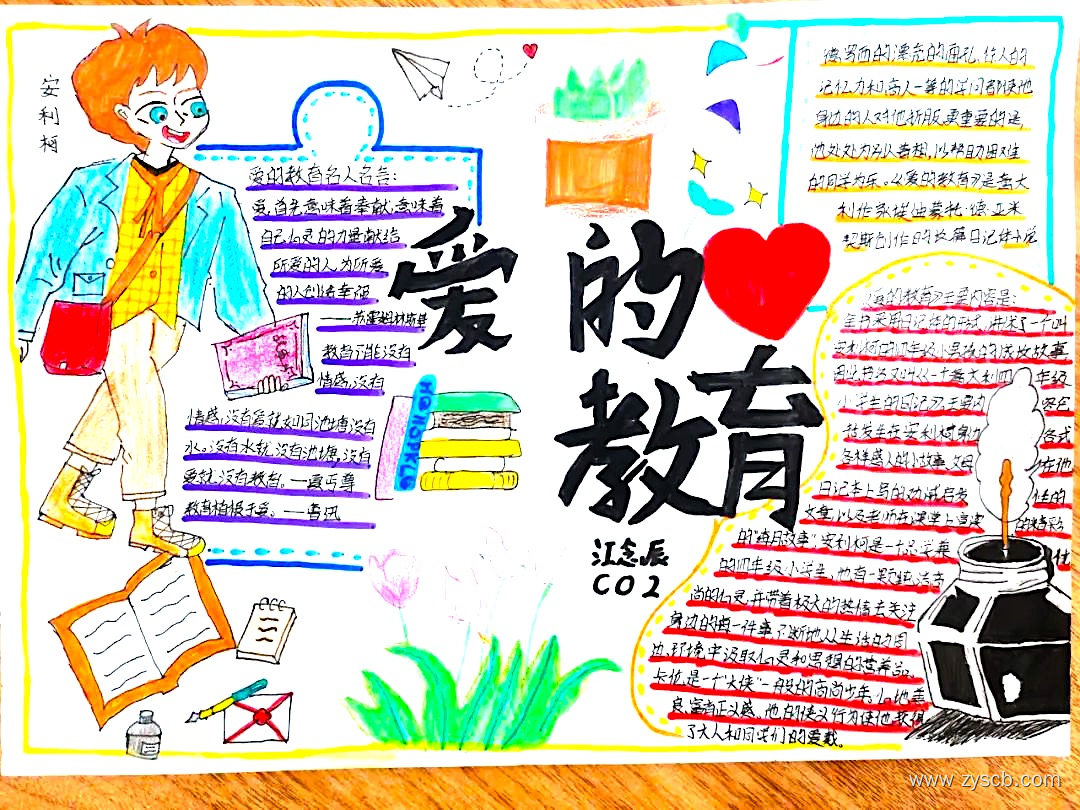 安利柯
爱的教育名人名言：
爱，首先意味着奉献，意味着
自己心灵的力量献给
所爱的人，为所爱
的人创造幸福
——苏霍姆林斯基
教育不能没有
情感，没有
情感，没有爱就如同池塘没有
水。没有水就没有池塘，没有
爱就没有教育。——夏丏尊
教育植根于爱。——鲁迅
爱的
教育
江念辰
CO2
德罗西的漂亮的面孔、惊人的
记忆力和高人一等的学问都使他
身边的人对他折服，更重要的是，
他处处为别人着想，以帮助困难
的同学为乐。《爱的教育》是意大
利作家埃迪蒙托·德·亚米
契斯创作的长篇日记体小说
《爱的教育》主要内容是：
全书采用日记体的形式，讲述了一个叫
安利柯的四年级小男孩的成长故事
因此书名又叫《一个意大利四年级
小学生的日记》主要内容包
括发生在安利柯身边各式
各样感人的小故事、父母在他
日记本上写的劝诫启发性的
文章，以及老师在课堂上宣读的精彩
的"每月故事"。安利柯是一个品学兼优
的四年级小学生，他有一颗纯洁高
尚的心灵，并带着极大的热情去关注
身边的每一件事，不断地从生活的周
边环境中汲取心灵和思想的营养品。
卡伦，是一个"大侠"一般的高尚少年。心地善
良，富有正义感，他的侠义行为使他获得
了大人和同学们的爱戴。
www.zyscb.com